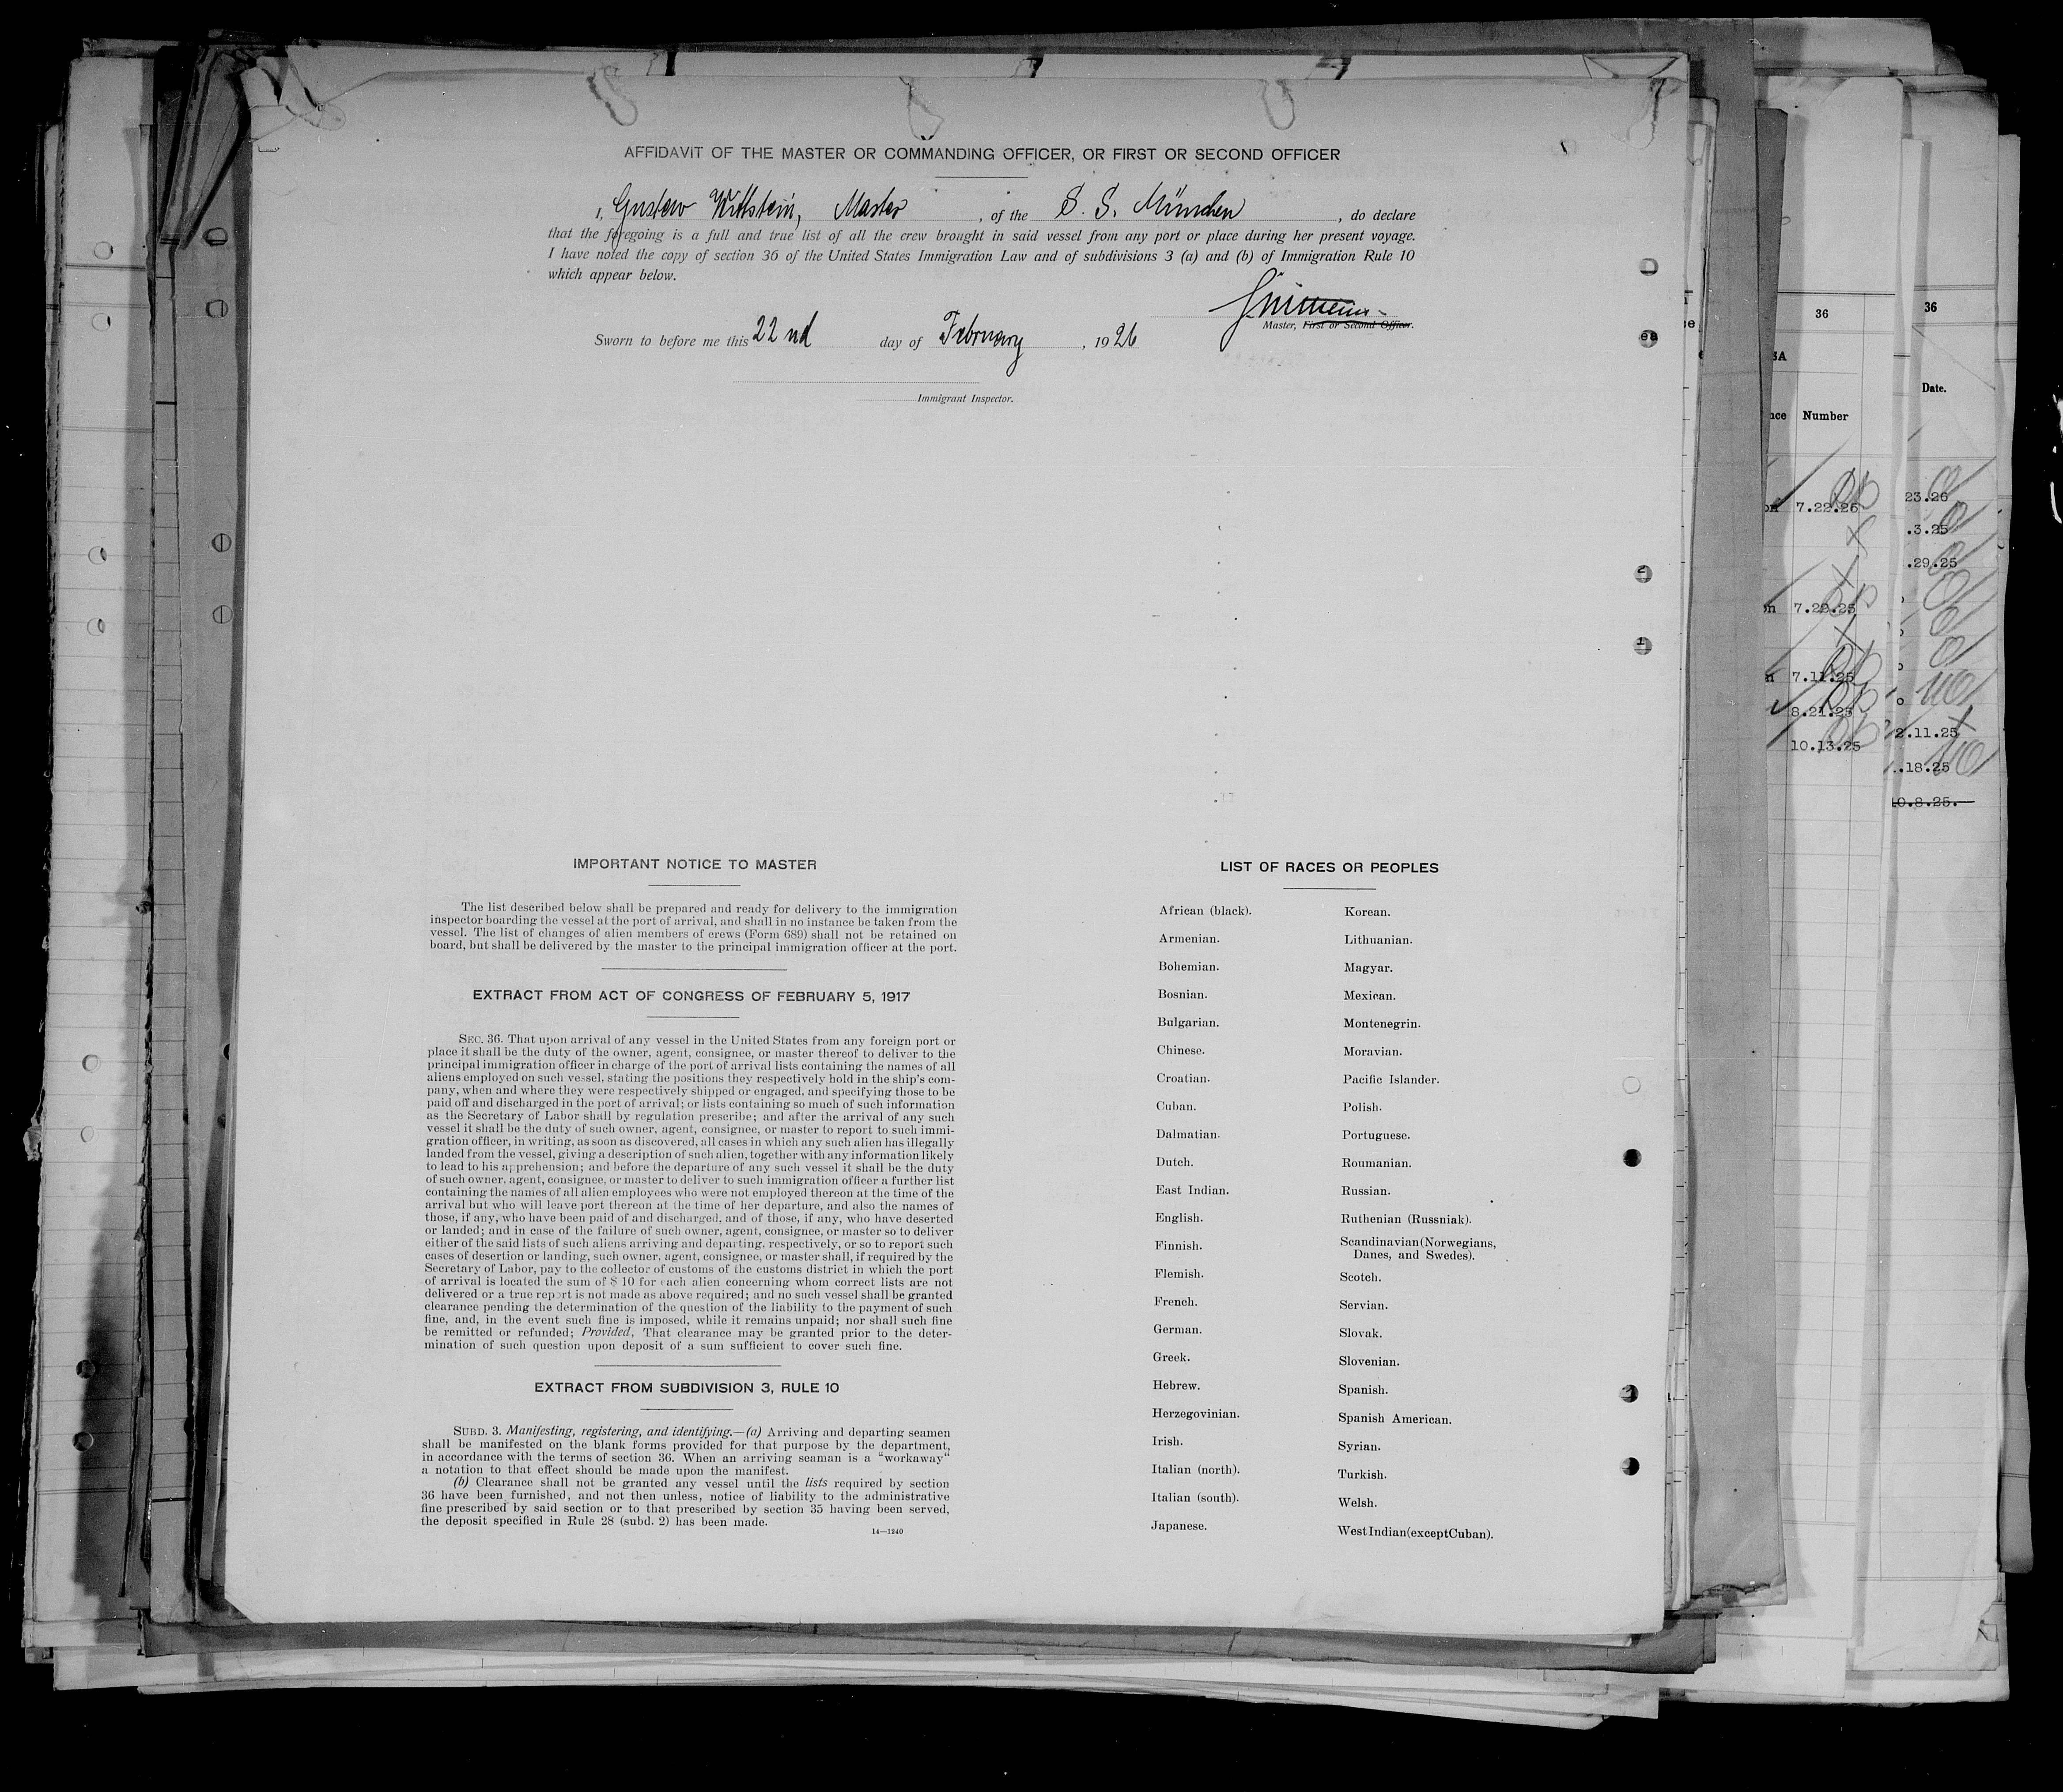 AFFIDAVIT OF THE MASTER OR COMMANDING OFFICER, OR FIRST OR SECOND OFFICER
I, Gustav Wittstein, Master, of the S. S. München, do declare
that the foregoing is a full and true list of all the crew brought in said vessel from any port or place during her present voyage.
I have noted the copy of section 36 of the United States Immigration Law and of subdivisions 3 (a) and (b) of Immigration Rule 10
which appear below.
Master, First or Second Officer.
Sworn to before me this 22nd day of February, 1926
Immigrant Inspector.
IMPORTANT NOTICE TO MASTER
The list described below shall be prepared and ready for delivery to the immigration
inspector boarding the vessel at the port of arrival, and shall in no instance be taken from the
vessel. The list of changes of alien members of crews (Form 689) shall not be retained on
board, but shall be delivered by the master to the principal immigration officer at the port.
EXTRACT FROM ACT OF CONGRESS OF FEBRUARY 5, 1917
SEC. 36. That upon arrival of any vessel in the United States from any foreign port or
place it shall be the duty of the owner, agent, consignee, or master thereof to deliver to the
principal immigration officer in charge of the port of arrival lists containing the names of all
aliens employed on such vessel, stating the positions they respectively hold in the ship's com-
pany, when and where they were respectively shipped or engaged, and specifying those to be
paid off and discharged in the port of arrival; or lists containing so much of such information
as the Secretary of Labor shall by regulation prescribe; and after the arrival of any such
vessel it shall be the duty of such owner, agent, consignee, or master to report to such immi-
gration officer, in writing, as soon as discovered, all cases in which any such alien has illegally
landed from the vessel, giving a description of such alien, together with any information likely
to lead to his apprehension; and before the departure of any such vessel it shall be the duty
of such owner, agent, consignee, or master to deliver to such immigration officer a further list
containing the names of all alien employees who were not employed thereon at the time of the
arrival but who will leave port thereon at the time of her departure, and also the names of
those, if any, who have been paid of and discharged, and of those, if any, who have deserted
or landed; and in case of the failure of such owner, agent, consignee, or master so to deliver
either of the said lists of such aliens arriving and departing, respectively, or so to report such
cases of desertion or landing, such owner, agent, consignee, or master shall, if required by the
Secretary of Labor, pay to the collector of customs of the customs district in which the port
of arrival is located the sum of $ 10 for each alien concerning whom correct lists are not
delivered or a true report is not made as above required; and no such vessel shall be granted
clearance pending the determination of the question of the liability to the payment of such
fine, and, in the event such fine is imposed, while it remains unpaid; nor shall such fine
be remitted or refunded; Provided, That clearance may be granted prior to the deter-
mination of such question upon deposit of a sum sufficient to cover such fine.
EXTRACT FROM SUBDIVISION 3, RULE 10
SUBD. 3. Manifesting, registering, and identifying.—(a) Arriving and departing seamen
shall be manifested on the blank forms provided for that purpose by the department,
in accordance with the terms of section 36. When an arriving seaman is a "workaway"
a notation to that effect should be made upon the manifest.
(b) Clearance shall not be granted any vessel until the lists required by section
36 have been furnished, and not then unless, notice of liability to the administrative
fine prescribed by said section or to that prescribed by section 35 having been served,
the deposit specified in Rule 28 (subd. 2) has been made.
14—1240
LIST OF RACES OR PEOPLES
African (black).
Armenian.
Bohemian.
Bosnian.
Bulgarian.
Chinese.
Croatian.
Cuban.
Dalmatian.
Dutch.
East Indian.
English.
Finnish.
Flemish.
French.
German.
Greek.
Hebrew.
Herzegovinian.
Irish.
Italian (north).
Italian (south).
Japanese.
Korean.
Lithuanian.
Magyar.
Mexican.
Montenegrin.
Moravian.
Pacific Islander.
Polish.
Portuguese.
Roumanian.
Russian.
Ruthenian (Russniak).
Scandinavian (Norwegians,
Danes, and Swedes).
Scotch.
Servian.
Slovak.
Slovenian.
Spanish.
Spanish American.
Syrian.
Turkish.
Welsh.
West Indian (except Cuban).
36
Number
7.22.26
7.29.25
7.11.25
8.21.25
10.13.25
36
Date.
23.26
.3.25
.29.25
2.11.25
.18.25
0.8.25.